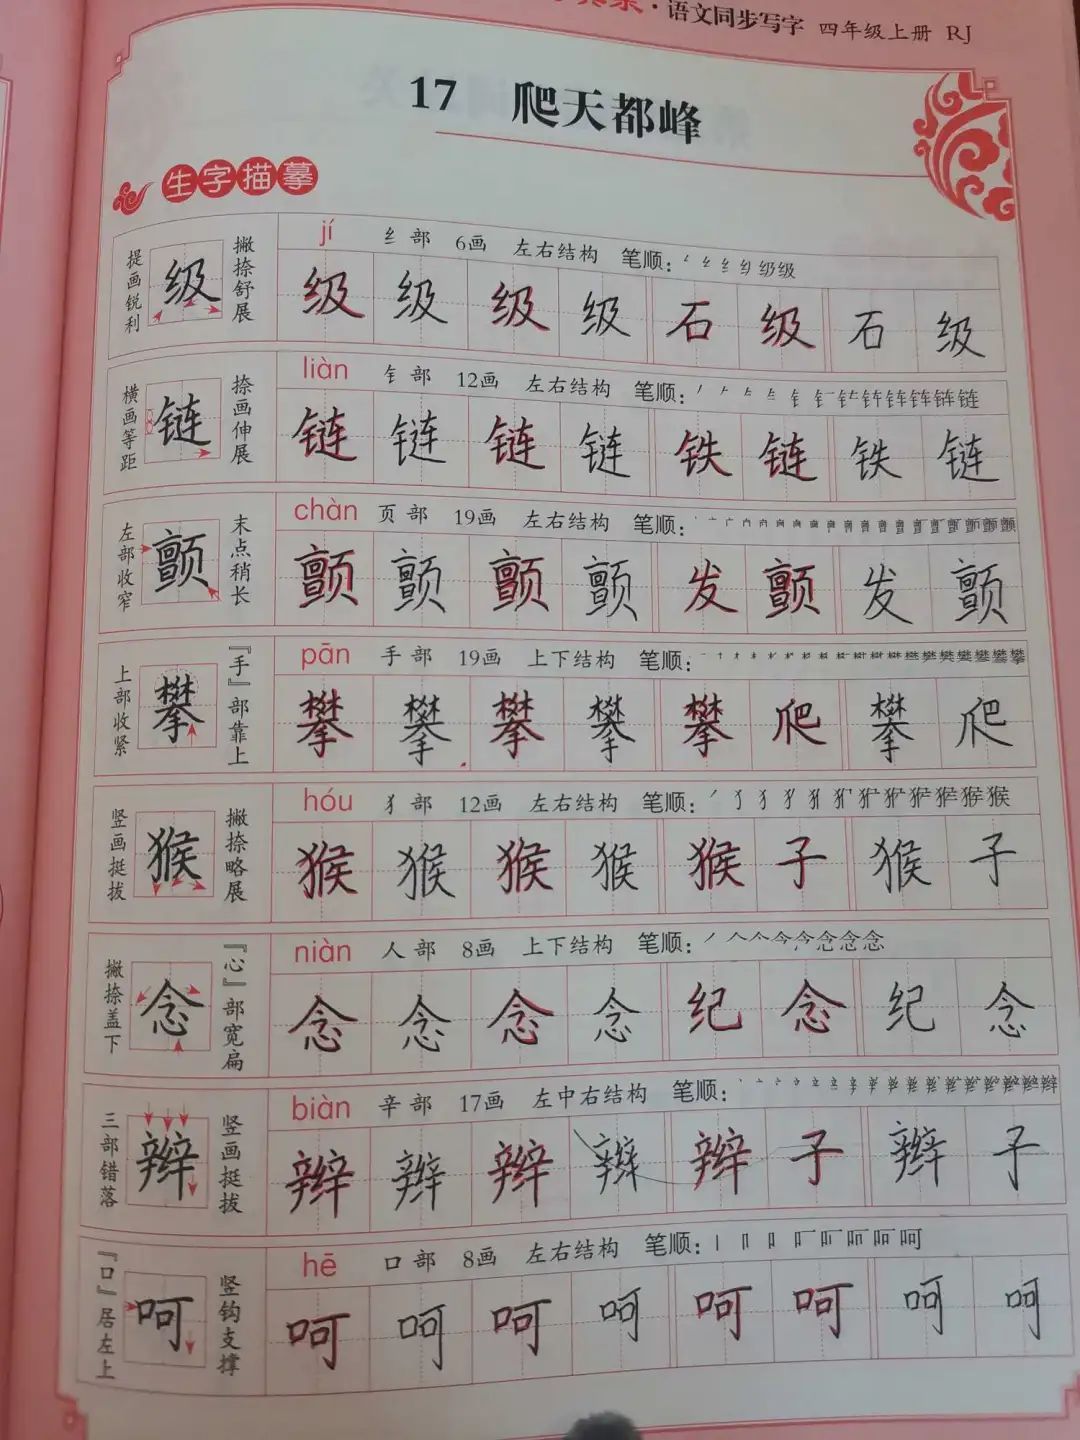 ·语文同步写字 四年级上册 RJ
17 爬天都峰
生字描摹
提画锐利 级 撇捺舒展
jí 纟部 6画 左右结构 笔顺：
级 级 级 级 石 级 石 级
横画等距 链 捺画伸展
liàn 钅部 12画 左右结构 笔顺：
链 链 链 链 铁 链 铁 链
左部收窄 颤 末点稍长
chàn 页部 19画 左右结构 笔顺：
颤 颤 颤 颤 发 颤 发 颤
上部收紧 攀 『手』部靠上
pān 手部 19画 上下结构 笔顺：
攀 攀 攀 攀 攀 爬 攀 爬
竖画挺拔 猴 撇捺略展
hóu 犭部 12画 左右结构 笔顺：
猴 猴 猴 猴 猴 子 猴 子
撇捺盖下 念 『心』部宽扁
niàn 人部 8画 上下结构 笔顺：
念 念 念 念 纪 念 纪 念
三部错落 辫 竖画挺拔
biàn 辛部 17画 左中右结构 笔顺：
辫 辫 辫 辫 辫 子 辫 子
『口』居左上 呵 竖钩支撑
hē 口部 8画 左右结构 笔顺：
呵 呵 呵 呵 呵 呵 呵 呵